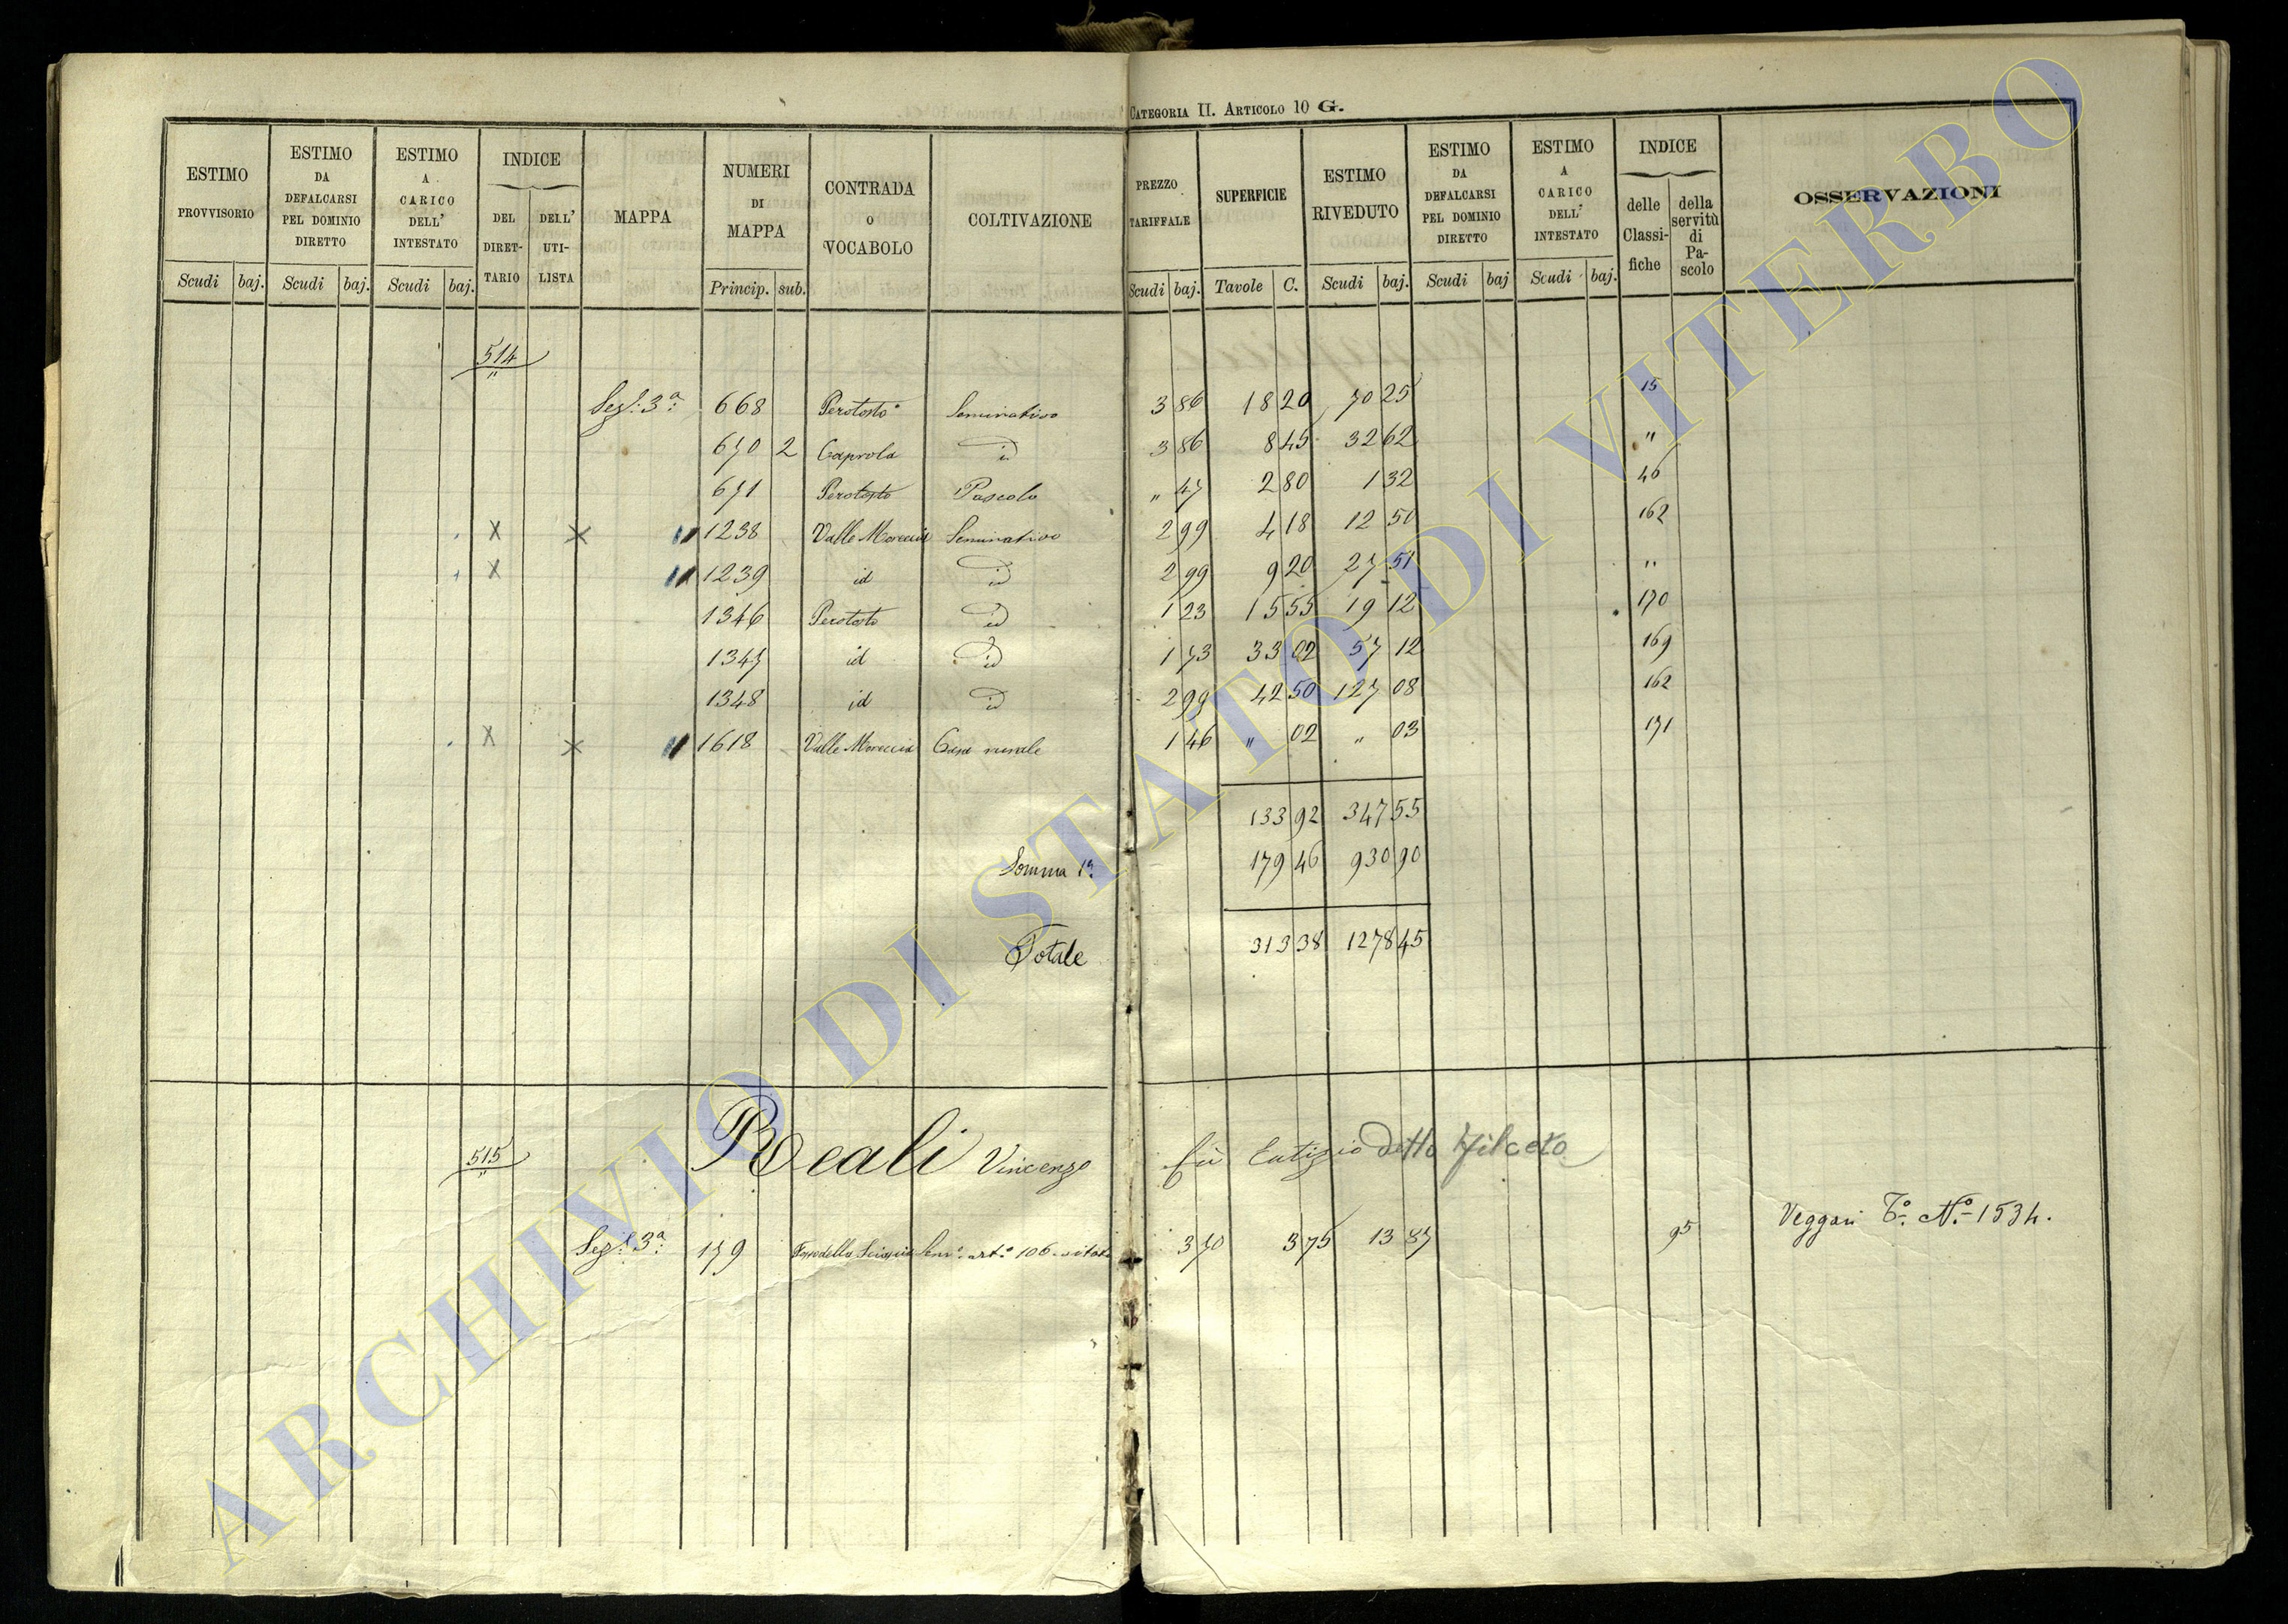 CATEGORIA II. ARTICOLO 10 G.
ESTIMO PROVVISORIO Scudi baj.
ESTIMO DA DEFALCARSI PEL DOMINIO DIRETTO Scudi baj.
ESTIMO A CARICO DELL' INTESTATO Scudi baj.
INDICE DEL DIRET-TARIO DELL' UTI-LISTA
MAPPA
NUMERI DI MAPPA Princip. sub.
CONTRADA o VOCABOLO
COLTIVAZIONE
PREZZO TARIFFALE Scudi baj.
SUPERFICIE Tavole C.
ESTIMO RIVEDUTO Scudi baj.
ESTIMO DA DEFALCARSI PEL DOMINIO DIRETTO Scudi baj
ESTIMO A CARICO DELL' INTESTATO Scudi baj.
INDICE delle Classi-fiche della servitù di Pa-scolo
OSSERVAZIONI
514 "
Sez. 3a 668 Perotosto Seminativo 3 86 18 20 70 25 15
670 2 Caprola id 3 86 8 45 32 62 "
671 Perotosto Pascolo " 47 2 80 1 32 46
X X 1238 Valle Moreccia Seminativo 2 99 4 18 12 50 162
X 1239 id id 2 99 9 20 27 51 "
1346 Perotosto id 1 23 15 55 19 12 170
1347 id id 1 73 33 02 57 12 169
1348 id id 2 99 42 50 127 08 162
X X 1618 Valle Moreccia Casa rurale 1 46 " 02 " 03 171
133 92 347 55
Somma 1a 179 46 930 90
Totale 313 38 1278 45
515 " Reali Vincenzo fù Eutizio detto
Sez. 3a 179 Sem. art. 106 vitato 3 70 3 75 13 87 95 Veggasi To. No. 1534.
ARCHIVIO DI STATO DI VITERBO